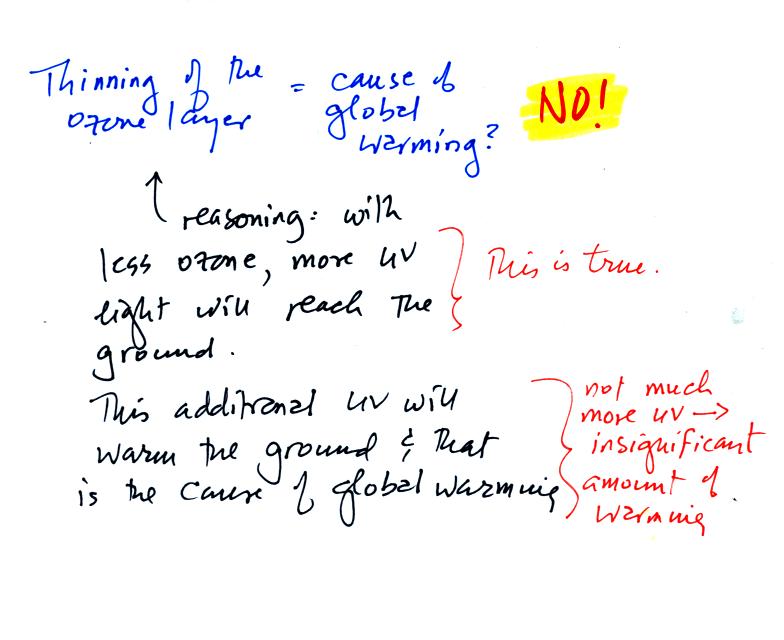 Thinning of the = cause of
ozone layer global
warming?
NO!
↑ reasoning: with
less ozone, more UV
light will reach the
ground.
This is true.
This additional UV will
warm the ground & that
is the cause of global warming
not much
more UV →
insignificant
amount of
warming